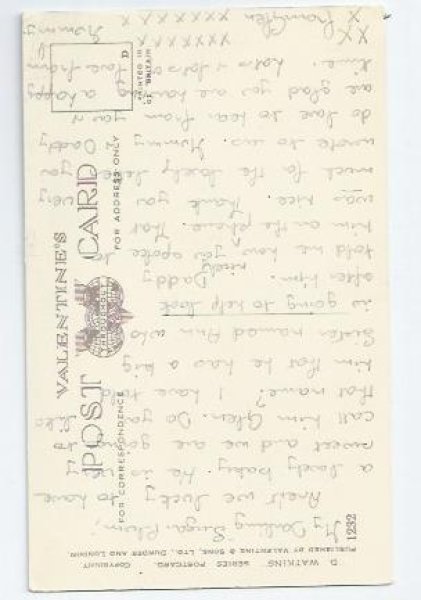 My Darling Sugar Plum,
Aren't we lucky to have
a lovely baby. He is very
sweet and we are going to
call him Glen. Do you like
that name? I have told
him that he has a big
sister named Ann who
is going to help look
after him. Daddy
told me how nicely you spoke to
him on the phone. That
was nice. Thank you very
much for the lovely letter you
wrote to us. Mummy & Daddy
love to hear from you &
are glad you are having a happy
time. Lots & lots of love from
Mummy
X X X X X X X
X X X X X X X
VALENTINE'S
POST CARD
FOR CORRESPONDENCE
FOR ADDRESS ONLY
PRINTED IN
GT. BRITAIN
D
1232
D. WATKINS' SERIES POSTCARD. COPYRIGHT
PUBLISHED BY VALENTINE & SONS, LTD., DUNDEE AND LONDON.